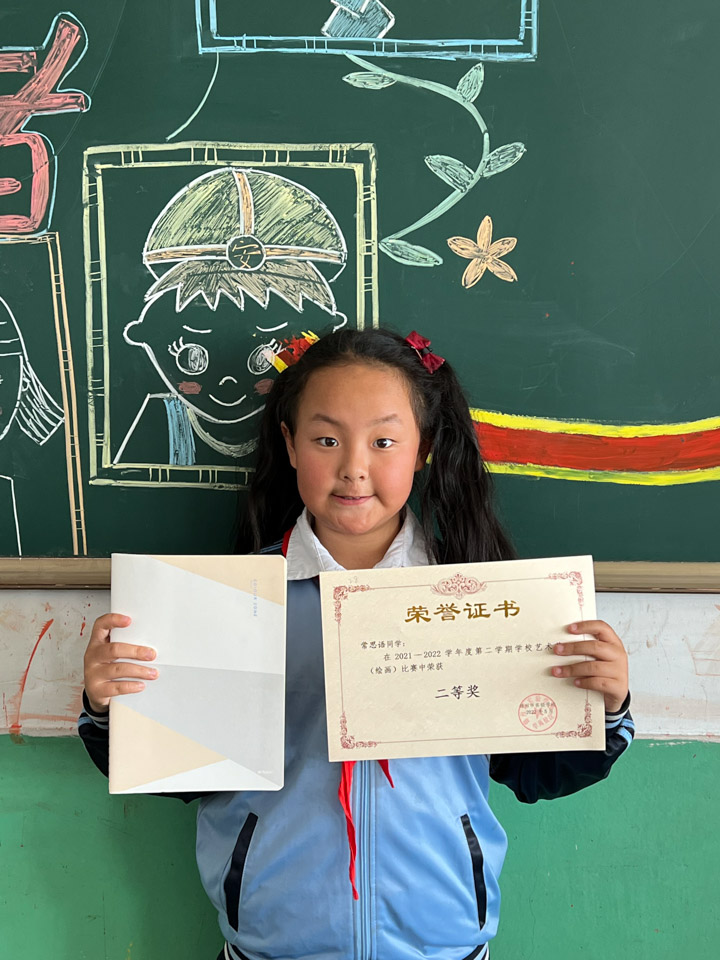 安
荣誉证书
常思语同学：
在 2021—2022 学年度第二学期学校艺术
（绘画）比赛中荣获
二等奖